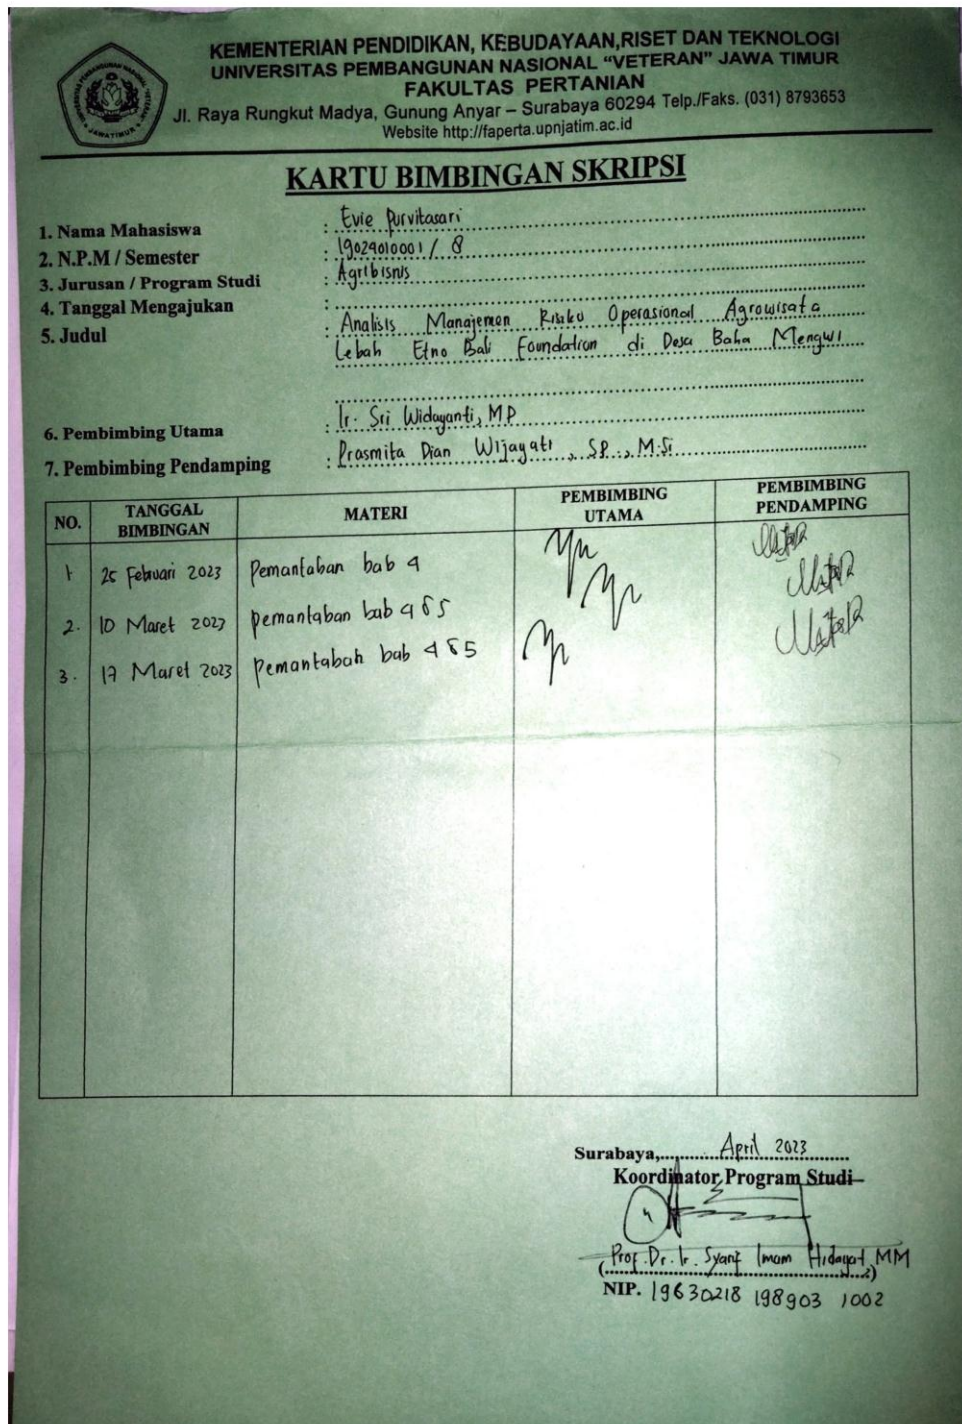 KEMENTERIAN PENDIDIKAN, KEBUDAYAAN,RISET DAN TEKNOLOGI
UNIVERSITAS PEMBANGUNAN NASIONAL “VETERAN” JAWA TIMUR
FAKULTAS PERTANIAN
Jl. Raya Rungkut Madya, Gunung Anyar – Surabaya 60294 Telp./Faks. (031) 8793653
Website http://faperta.upnjatim.ac.id
KARTU BIMBINGAN SKRIPSI
1. Nama Mahasiswa : Evie Purvitasari
2. N.P.M / Semester : 19024010001 / 8
3. Jurusan / Program Studi : Agribisnis
4. Tanggal Mengajukan :
5. Judul : Analisis Manajemen Risiko Operasional Agrowisata
Lebah Etno Bali Foundation di Desa Baha Mengwi
6. Pembimbing Utama : Ir. Sri Widayanti, MP
7. Pembimbing Pendamping : Prasmita Dian Wijayati, SP., M.Si
NO. TANGGAL BIMBINGAN MATERI PEMBIMBING UTAMA PEMBIMBING PENDAMPING
1 25 Februari 2023 Pemantaban bab 4
2. 10 Maret 2023 pemantaban bab 4 & 5
3. 17 Maret 2023 pemantabah bab 4 & 5
Surabaya, April 2023
Koordinator Program Studi
(Prof. Dr. Ir. Syarif Imam Hidayat, MM)
NIP. 19630218 198903 1002